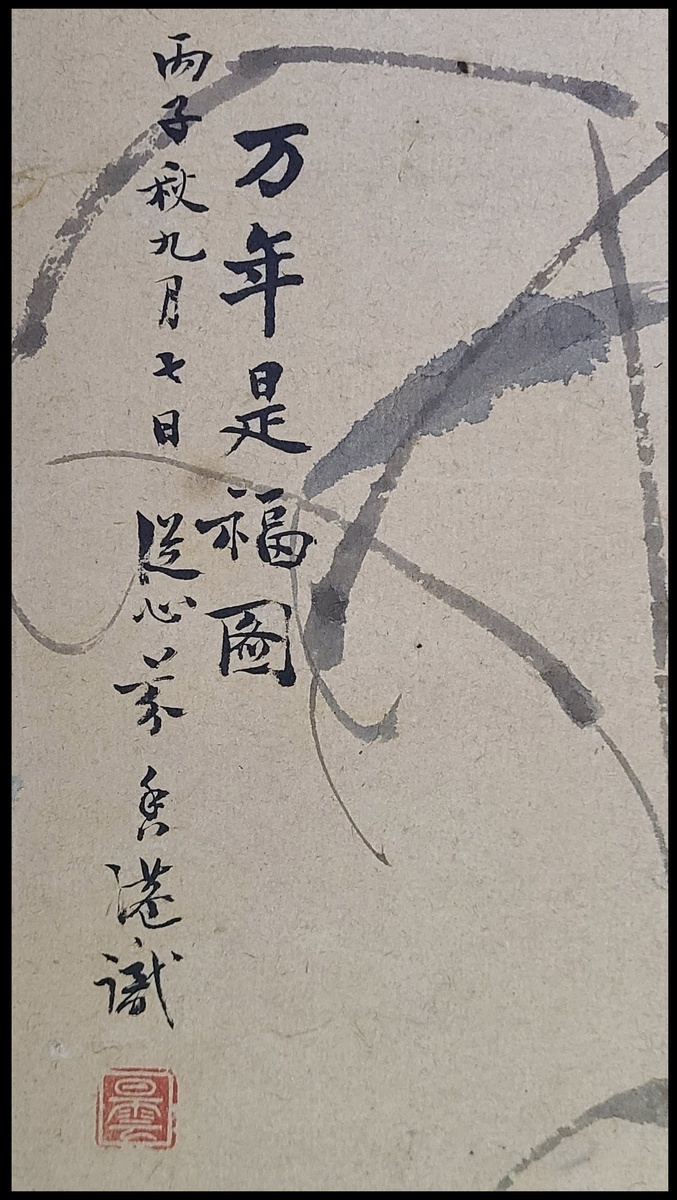 万年是福圖
丙子秋九月七日從心芬香港識